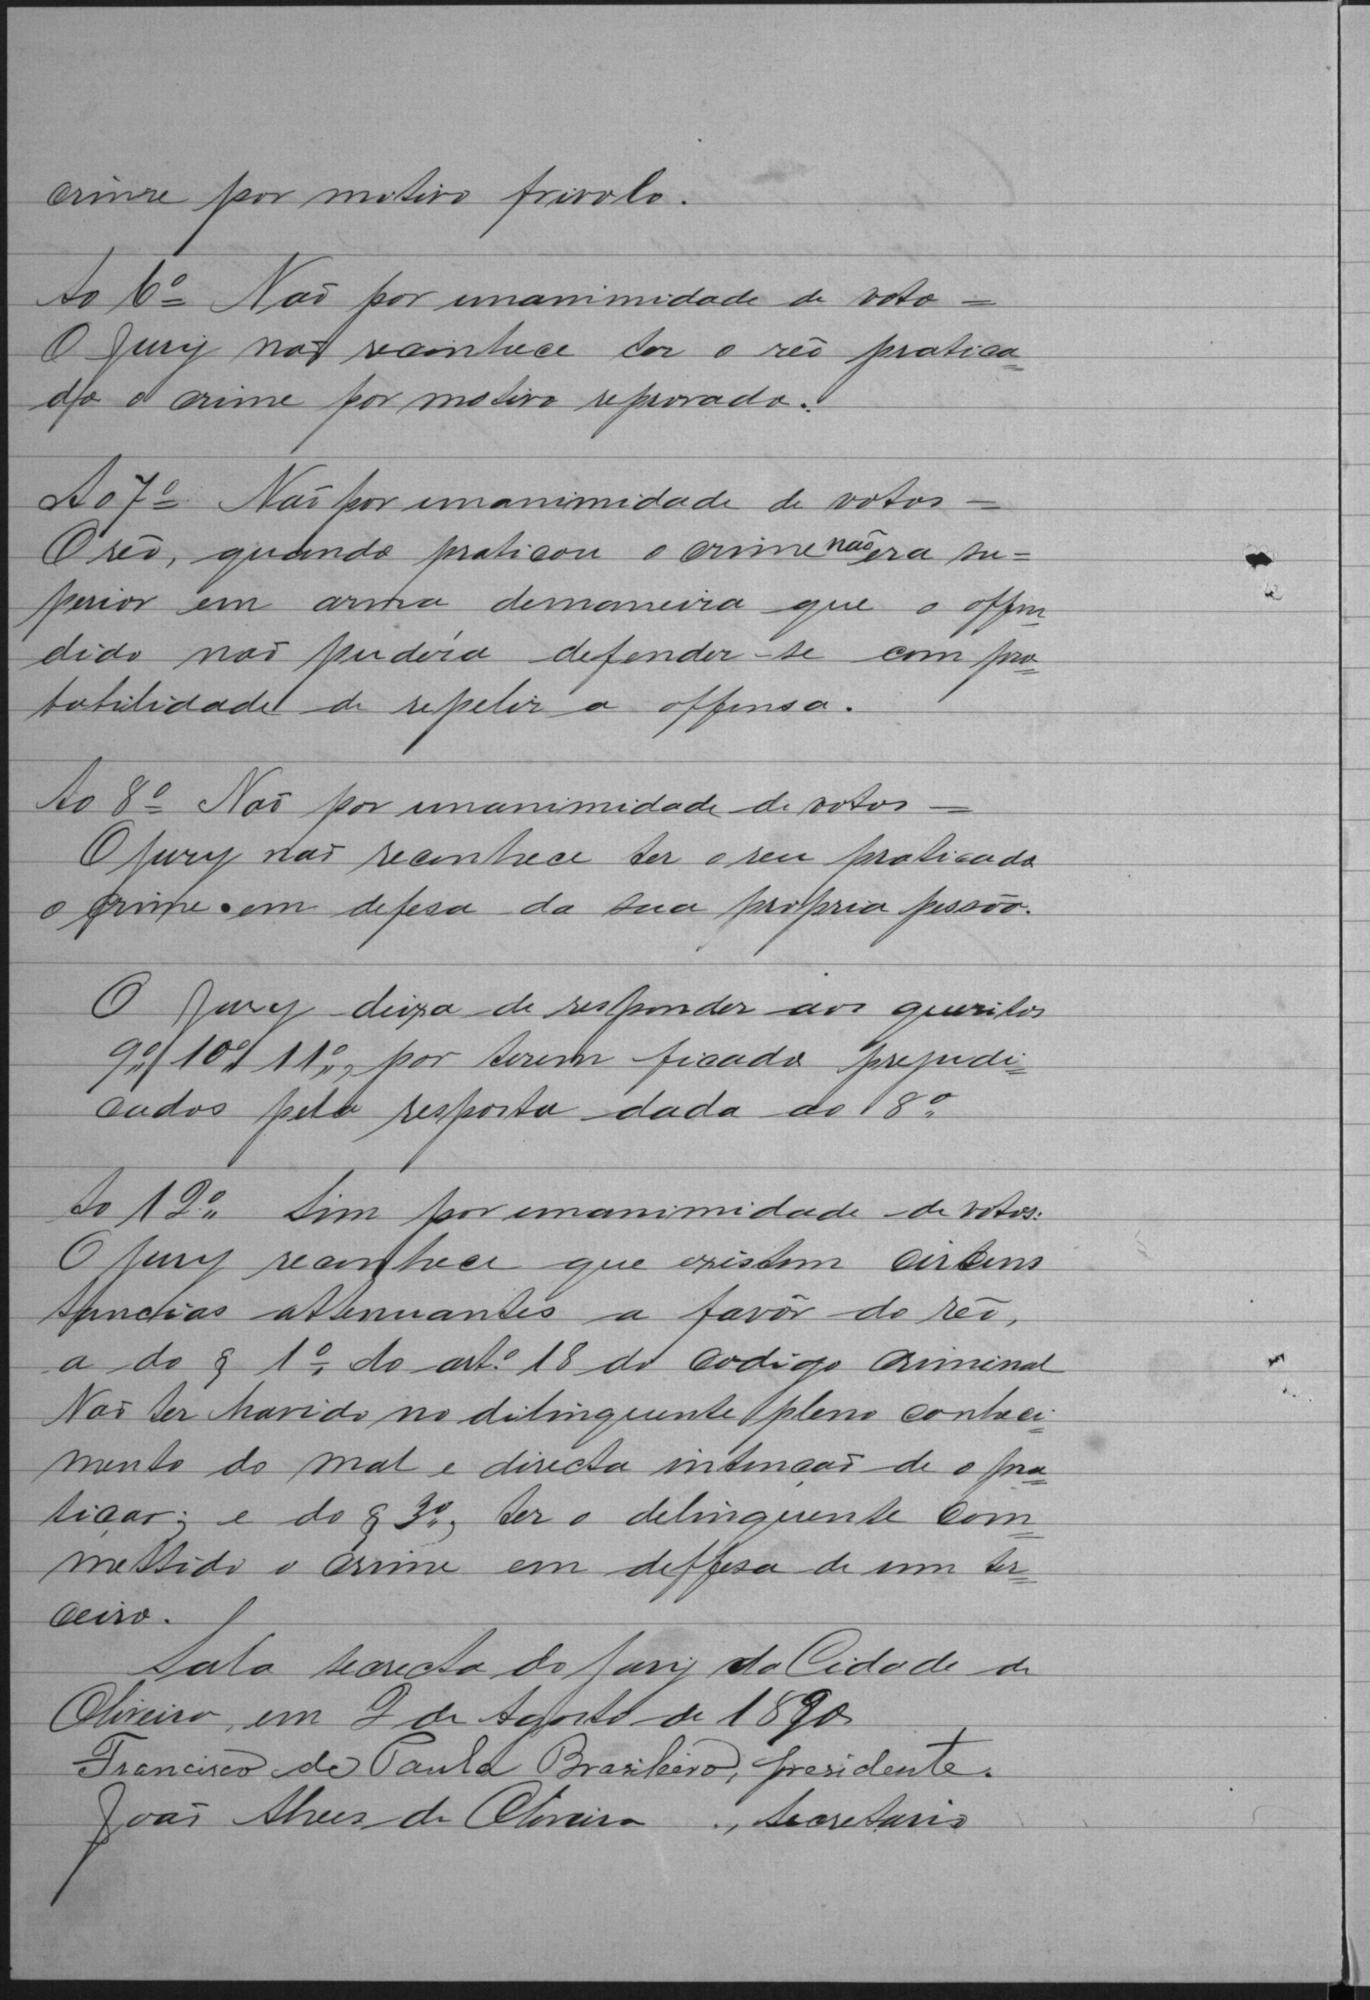 crime por motivo frivolo.
Ao 6º Naõ por unanimidade de voto =
O Jury naõ reconhece ter o reõ pratica=
do o crime por motivo reprovado.
Ao 7º Naõ por unanimidade de votos =
O reõ, quando praticou o crime não era su=
perior em arma demaneira que o offen=
dido naõ pudéra defender-se com pro=
babilidade de repelir a offensa.
Ao 8º Naõ por unanimidade de votos =
O jury naõ reconhece ter o reu praticado
o crime em defesa da sua propria pessôa.
O Jury deixa de responder aos quesitos
9º, 10º, 11º, por terem ficado prejudi=
cados pela resposta dada ao 8º
Ao 12º Sim por unanimidade de votos:
O jury reconhece que existem circuns
tancias attenuantes a favôr do reõ,
a do § 1º do artº 18 do codigo criminal
Naõ ter havido no dilinquente pleno conheci=
mento do mal e directa intençaõ de o pra=
ticar; e do § 3º, ter o delinquente com=
mettido o crime em deffesa de um ter=
ceiro.
Sala secrecta do jury da Cidade de
Oliveira, em 2 de Agosto de 1890
Francisco de Paula Brasileiro, presidente.
Joaõ Alves de Oliveira ., secretario